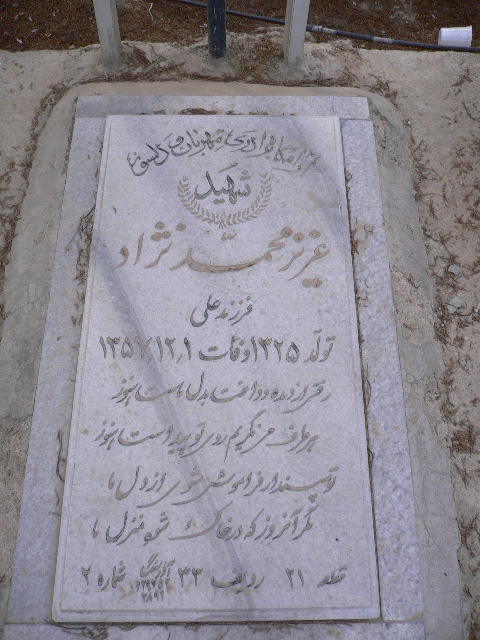 آرامگاه برادری مهربان و دلسوز
شهید
عزیز محمدنژاد
فرزند علی
تولد ۱۳۲۵ وفات ۱۳۵۷/۱۲/۱
رفتی ز دیده و داغت بدل ماست هنوز
هر طرف می نگریم روی تو پیداست هنوز
تو مپندار فراموش شوی از دل ما
مگر آنروز که در خاک شود منزل ما
قطعه ۲۱ ردیف ۳۳ شماره ۲